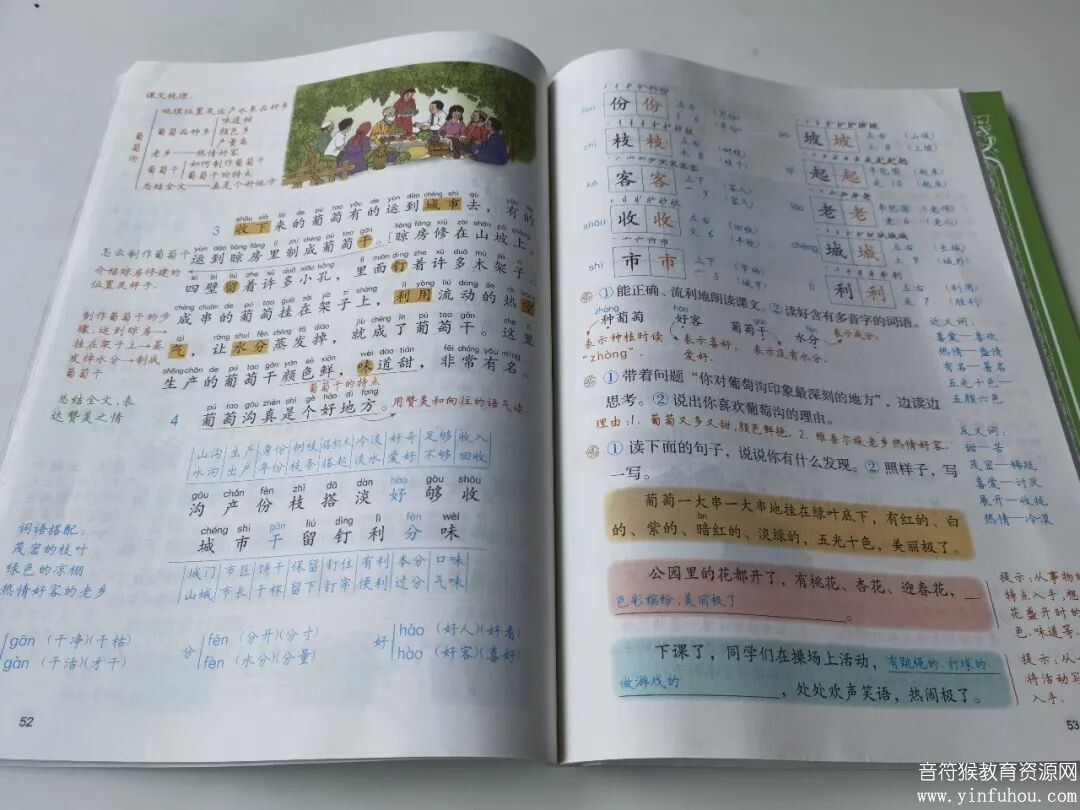 课文梳理：
地理位置及出产水果品种多
葡萄沟
葡萄品种多
味道甜
颜色多
产量高
老乡——热情好客
葡萄干
如何制作葡萄干
葡萄干的特点
总结全文——真是个好地方
shōu xià lái de pú tao yǒu de yùn dào chéng shì qù
3 收下来的葡萄有的运到城市去，有的
运到晾房里制成葡萄干。［晾房修在山坡上，
四壁留着许多小孔，里面钉着许多木架子。
成串的葡萄挂在架子上，利用流动的热空
气，让水分蒸发掉，就成了葡萄干。这里
生产的葡萄干颜色鲜，味道甜，非常有名。
葡萄干的特点
pú tao gōu zhēn shì gè hǎo dì fang
4 葡萄沟真是个好地方。用赞美和向往的语气读
怎么制作葡萄干
介绍晾房修建的
位置及样子。
制作葡萄干的步
骤：运到晾房→
挂在架子上→蒸
发掉水分→制成
葡萄干
总结全文，表
达赞美之情
山沟 生产 身份 树枝 搭积木 冷淡 好奇 足够 收入
水沟 出产 年份 枝条 搭起 淡水 爱好 不够 回收
gōu chǎn fèn zhī dā dàn hào gòu shōu
沟 产 份 枝 搭 淡 好 够 收
chéng shì gān liú dìng lì fèn wèi
城 市 干 留 钉 利 分 味
城门 市区 饼干 保留 钉住 有利 本分 口味
山城 市长 干杯 留下 钉牢 便利 过分 气味
词语搭配：
茂密的枝叶
绿色的凉棚
热情好客的老乡
gān （干净）（干枯）
gàn （干活）（才干）
分
fēn （分开）（分寸）
fèn （水分）（分量）
好
hǎo （好人）（好看）
hào （好客）（喜好）
52
fèn 份 份 左右 亻 6 （月份）（年份）
zhī 枝 枝 左右 木 8 （树枝）（枝干）
kè 客 客 上下 宀 9 （客人）（客气）
shōu 收 收 左右 攵 6 （回收）（丰收）
shì 市 市 上下 5 （市场）（城市）
pō 坡 坡 左右 土 8 （山坡）（上坡）
qǐ 起 起 半包围 走 10 （起来）（起床）
lǎo 老 老 半包围 6 （老师）（老人）
chéng 城 城 左右 土 9 （长城）（城外）
lì 利 利 左右 禾 7 （利用）（胜利）
①能正确、流利地朗读课文。②读好含有多音字的词语。
zhòng
种葡萄 好客 葡萄干 水分
表示种植时读
“zhòng”.
表示喜好，
爱好.
表示没有水分.
表示成分.
①带着问题“你对葡萄沟印象最深刻的地方”，边读边
思考。②说出你喜欢葡萄沟的理由。
理由：1. 葡萄又多又甜，颜色鲜艳. 2. 维吾尔族老乡热情好客.
①读下面的句子，说说你有什么发现。②照样子，写
一写。
葡萄一大串一大串地挂在绿叶底下，有红的、白
àn
的、紫的、暗红的、淡绿的，五光十色，美丽极了。
公园里的花都开了，有桃花、杏花、迎春花，
色彩缤纷，美丽极了。
下课了，同学们在操场上活动，有跳绳的、打球的、
做游戏的，处处欢声笑语，热闹极了。
近义词：
喜爱—喜欢
热情—盛情
有名—著名
五光十色—
五颜六色
反义词：
甜—苦
茂密—稀疏
喜爱—讨厌
展开—收拢
热情—冷漠
提示：从事物的
特点入手，想
花盛开时的
色、味道等.
提示：从
将活动写
入手.
53
音符猴教育资源网
www.yinfuhou.com